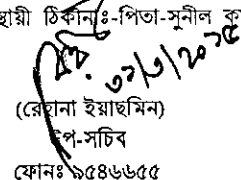 স্থায়ী ঠিকানাঃ-পিতা-সুনীল কু
(রেহানা ইয়াছমিন)
উপ-সচিব
ফোনঃ ৯৫৪৬৬৫৫